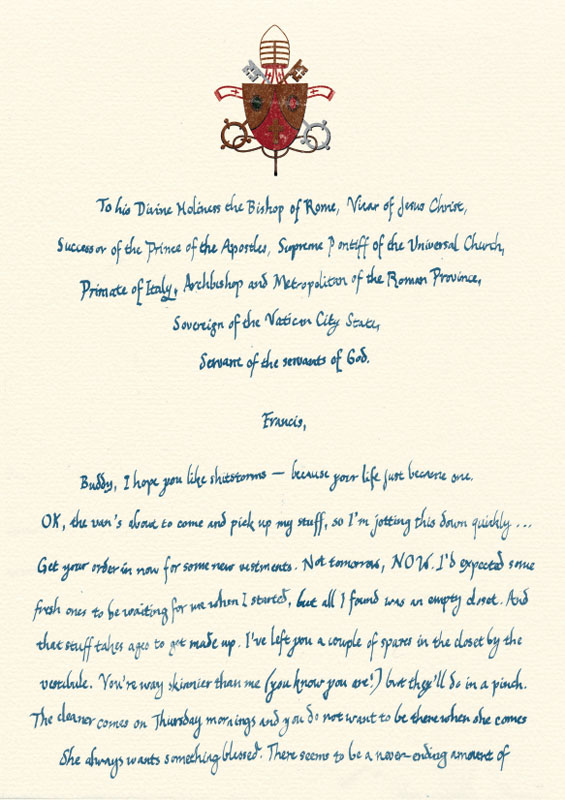 To his Divine Holiness the Bishop of Rome, Vicar of Jesus Christ,
Successor of the Prince of the Apostles, Supreme Pontiff of the Universal Church,
Primate of Italy, Archbishop and Metropolitan of the Roman Province,
Sovereign of the Vatican City State,
Servant of the servants of God.
Francis,
Buddy, I hope you like shitstorms — because your life just became one.
OK, the van's about to come and pick up my stuff, so I'm jotting this down quickly ...
Get your order in now for some new vestments. Not tomorrow, NOW. I'd expected some
fresh ones to be waiting for me when I started, but all I found was an empty closet. And
that stuff takes ages to get made up. I've left you a couple of spares in the closet by the
vestibule. You're way skinnier than me (you know you are!) but they'll do in a pinch.
The cleaner comes on Thursday mornings and you do not want to be there when she comes
She always wants something blessed. There seems to be a never-ending amount of